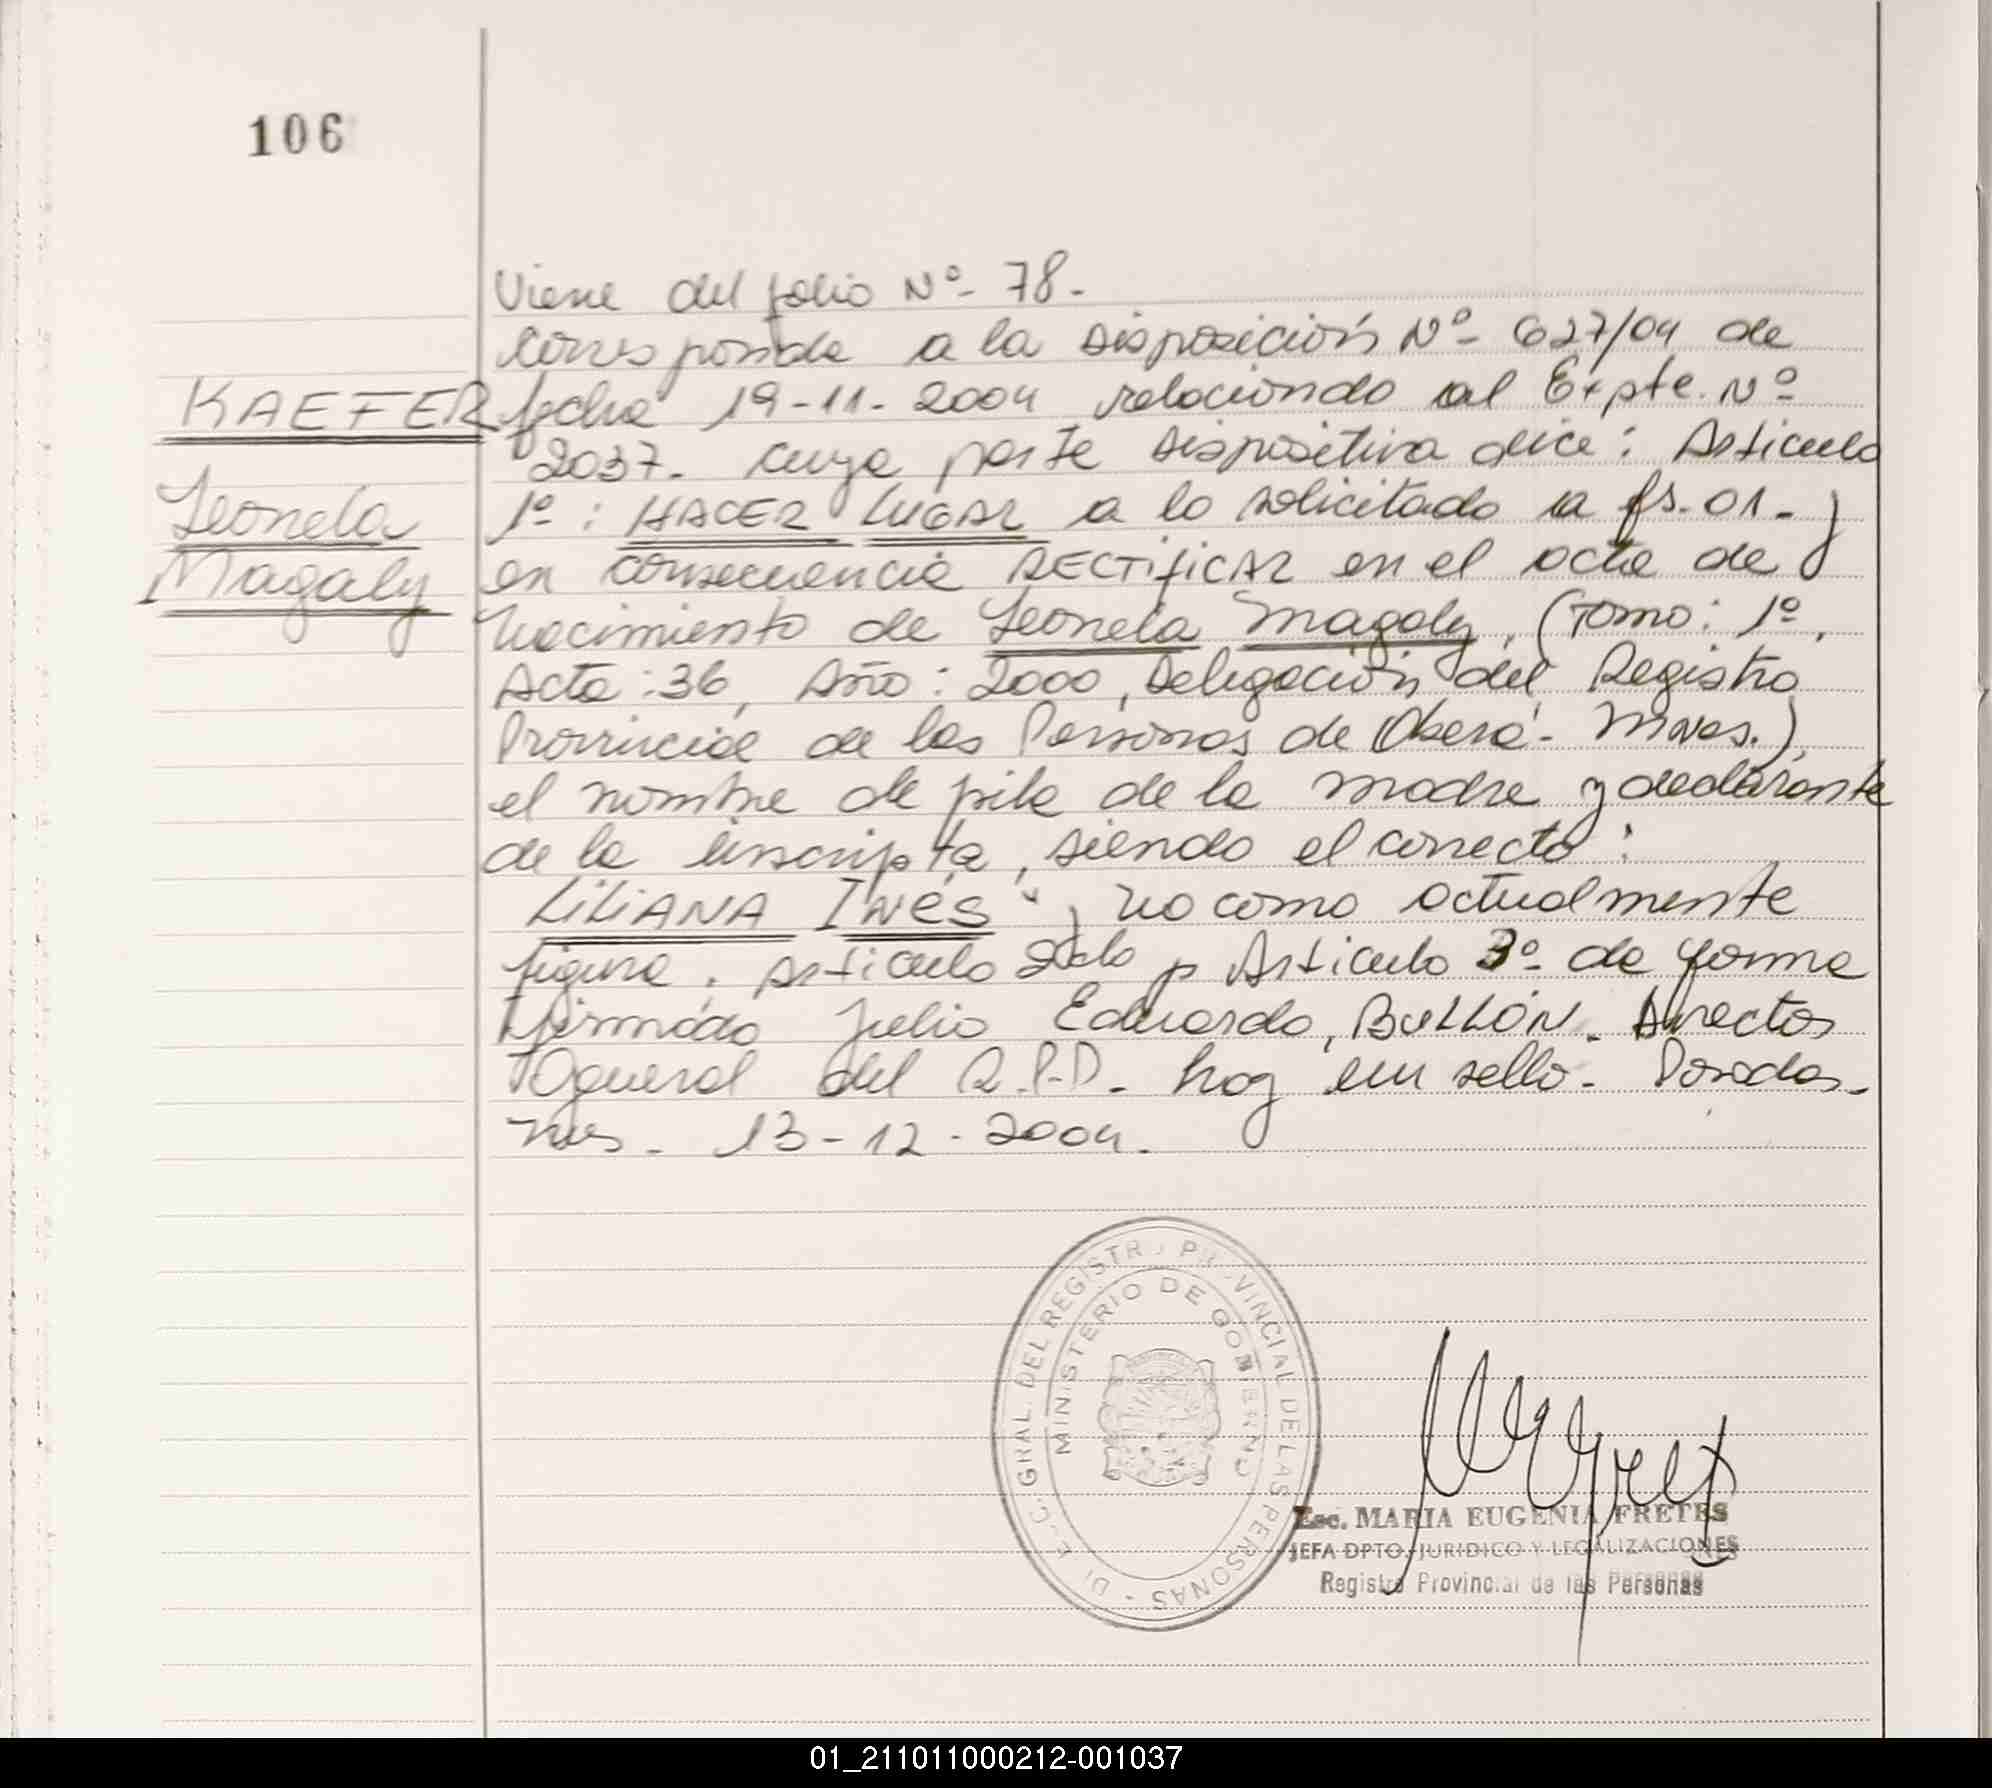 106
KAEFER
Leonela
Magaly
Viene del folio Nº- 78-
Corresponde a la Disposición Nº- 627/04 de
fecha 19-11-2004 relacionado al Expte. Nº
2037. cuya parte dispositiva dice: Articulo
1º: HACER LUGAR a lo solicitado a fs-01- y
en consecuencia RECTIFICAR en el acta de
nacimiento de Leonela Magaly, (Tomo: 1º,
Acta: 36, Año: 2000, Delegación del Registro
Provincial de las Personas de Oberá- Mnes.),
el nombre de pila de la madre y declarante
de la inscripta, siendo el correcto:
LILIANA INéS" y no como actualmente
figura. Articulo 2do y Articulo 3º- de forma
firmado Julio Eduardo, BULLÓN- Director
General del R.P.P- hay un sello- Posadas-
Mes- 13-12-2004.
DIREC. GRAL. DEL REGISTRO PROVINCIAL DE LAS PERSONAS -
MINISTERIO DE GOBIERNO
Esc. MARIA EUGENIA FRETES
JEFA DPTO. JURIDICO Y LEGALIZACIONES
Registro Provincial de las Personas
01_211011000212-001037